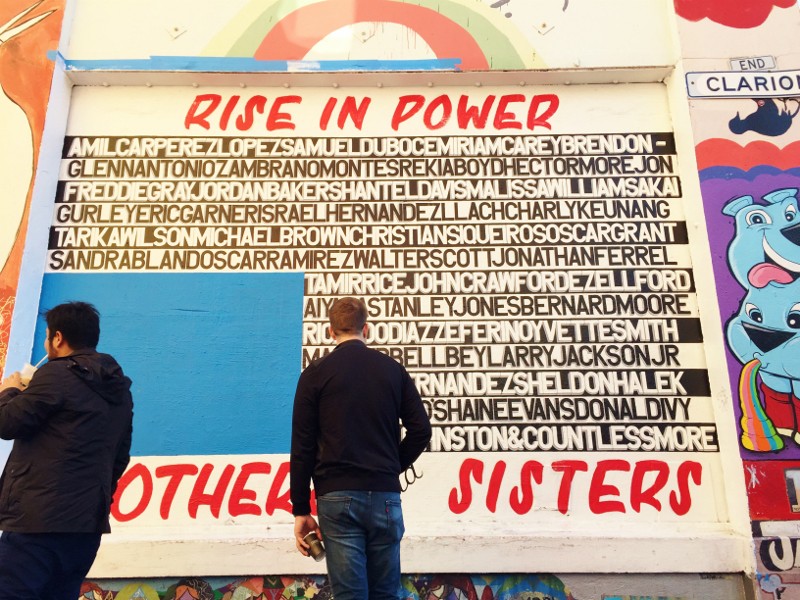 RISE IN POWER
END
CLARION
AMILCARPEREZLOPEZSAMUELDUBOCEMIRIAMCAREYBRENDON-
GLENNANTONIOZAMBRANOMONTESREKIABOYDHECTORMOREJON
FREDDIEGRAYJORDANBAKERSHANTELDAVISMALISSAWILLIAMSAKAI
GURLEYERICGARNERISRAELHERNANDEZLLACHCHARLYKEUNANG
TARIKAWILSONMICHAELBROWNCHRISTIANSIQUEIROSOSCARGRANT
SANDRABLANDOSCARRAMIREZWALTERSCOTTJONATHANFERREL
TAMIRRICEJOHNCRAWFORDEZELLFORD
ASTANLEYJONESBERNARDMOORE
OODIAZZEFERINOYVETTESMITH
BELLBEYLARRYJACKSONJR
ERNANDEZSHELDONHALEK
O'SHAINEEVANSDONALDIVY
INSTON&COUNTLESSMORE
OTHER
SISTERS